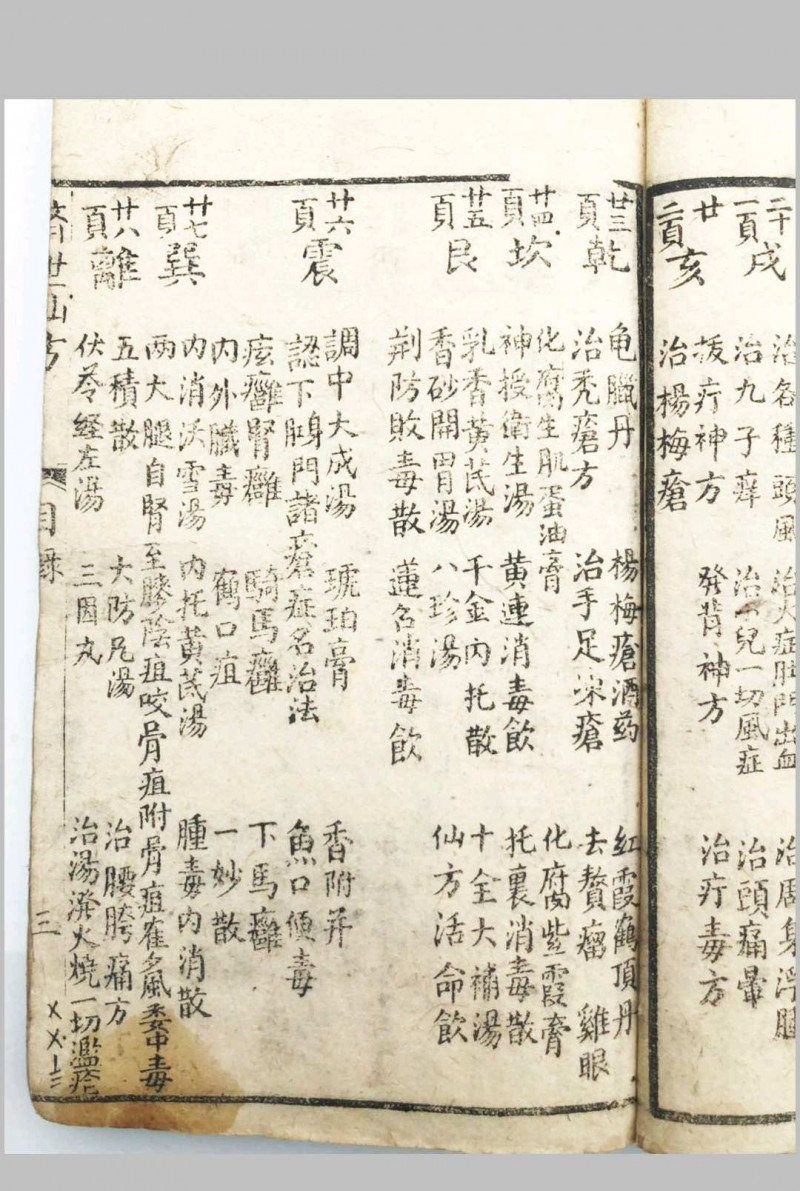 二十一頁 戌
治各種頭風 治火症肚門出血 治周身浮腫
治九子癢 治小兒一切風症 治頭痛暈
廿二頁 亥
拔疔神方 發背神方 治疔毒方
治楊梅瘡
廿三頁 乾
龟臘丹 楊梅瘡酒药 紅霞鶴頂丹
治禿瘡方 治手足氷瘡 去贅瘤 雞眼
化腐生肌蛋油膏 化腐紫霞膏
廿四頁 坎
神授衛生湯 黄連消毒飲 托裏消毒散
乳香黄芪湯 千金内托散 十全大補湯
廿五頁 艮
香砂開胃湯 八珍湯 仙方活命飲
荆防敗毒散 蓮名消毒飲
廿六頁 震
調中大成湯 琥珀膏 香附并
認下部門諸瘡症名治法 魚口便毒
痃癰腎癰 騎馬癰 下馬癰
内外臓毒 鶴口疽 一妙散
廿七頁 巽
内消沃雪湯 内托黄芪湯 腫毒内消散
兩大腿自腎至膝陰疽咬骨疽附骨疽
廿八頁 離
五積散 大防凡湯 治腰胯痛方
伏苓經左湯 三因丸 治湯潑火燒一切濫疮
濟世仙方 目錄 三